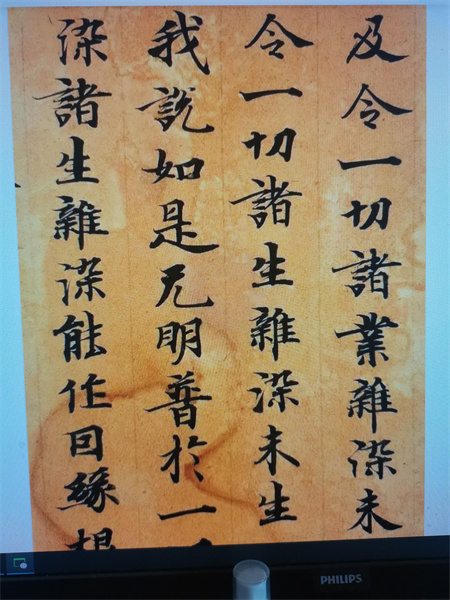 及令一切諸業雜染未
令一切諸生雜染未生
我說如是无明普於一
染諸生雜染能作因緣根
PHILIPS